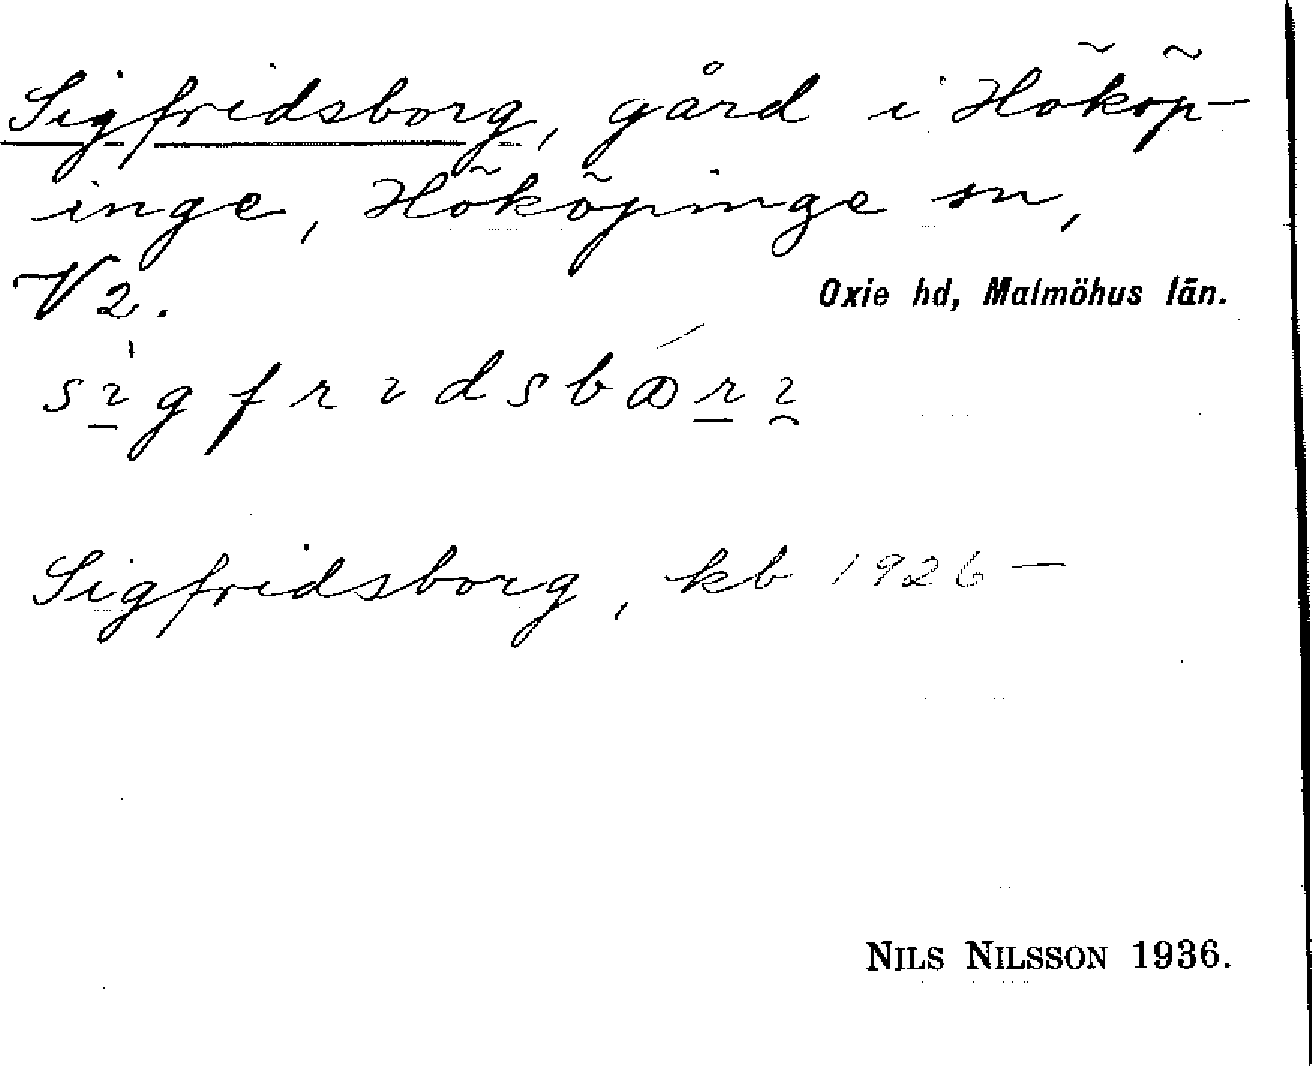 Sigfridsborg, gård i Hököp-
inge, Hököpinge sn,
V2.
Oxie hd, Malmöhus län.
Sigfridsborg, kb 1926-
NILS NILSSON 1936.